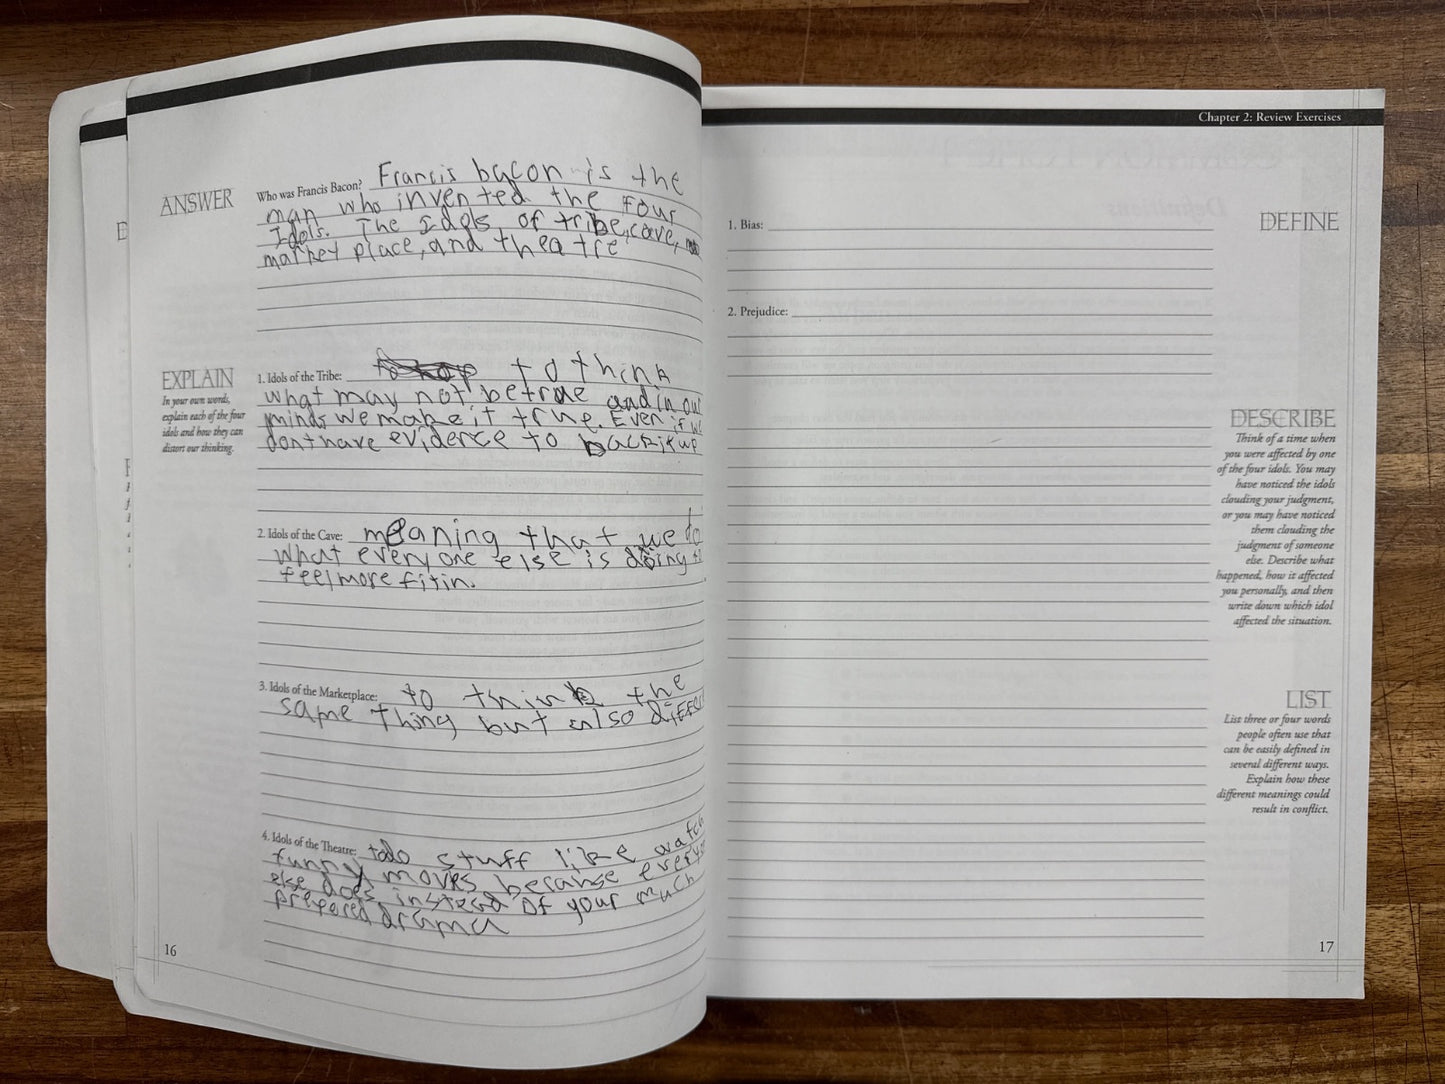 ANSWER
Who was Francis Bacon? Francis bacon is the
man who invented the four
Idols. The Idols of tribe, cave,
market place, and theatre
EXPLAIN
In your own words,
explain each of the four
idols and how they can
distort our thinking.
1. Idols of the Tribe: to think
what may not be true and in our
minds we make it true. Even if we
dont have evidence to back it up
2. Idols of the Cave: meaning that we do
what every one else is doing to
feel more fit in.
3. Idols of the Marketplace: to think the
same thing but also
4. Idols of the Theatre: todo stuff like watch
funny moves because
else does, instead of your much
prefered drama
16
Chapter 2: Review Exercises
1. Bias:
DEFINE
2. Prejudice:
DESCRIBE
Think of a time when
you were affected by one
of the four idols. You may
have noticed the idols
clouding your judgment,
or you may have noticed
them clouding the
judgment of someone
else. Describe what
happened, how it affected
you personally, and then
write down which idol
affected the situation.
LIST
List three or four words
people often use that
can be easily defined in
several different ways.
Explain how these
different meanings could
result in conflict.
17